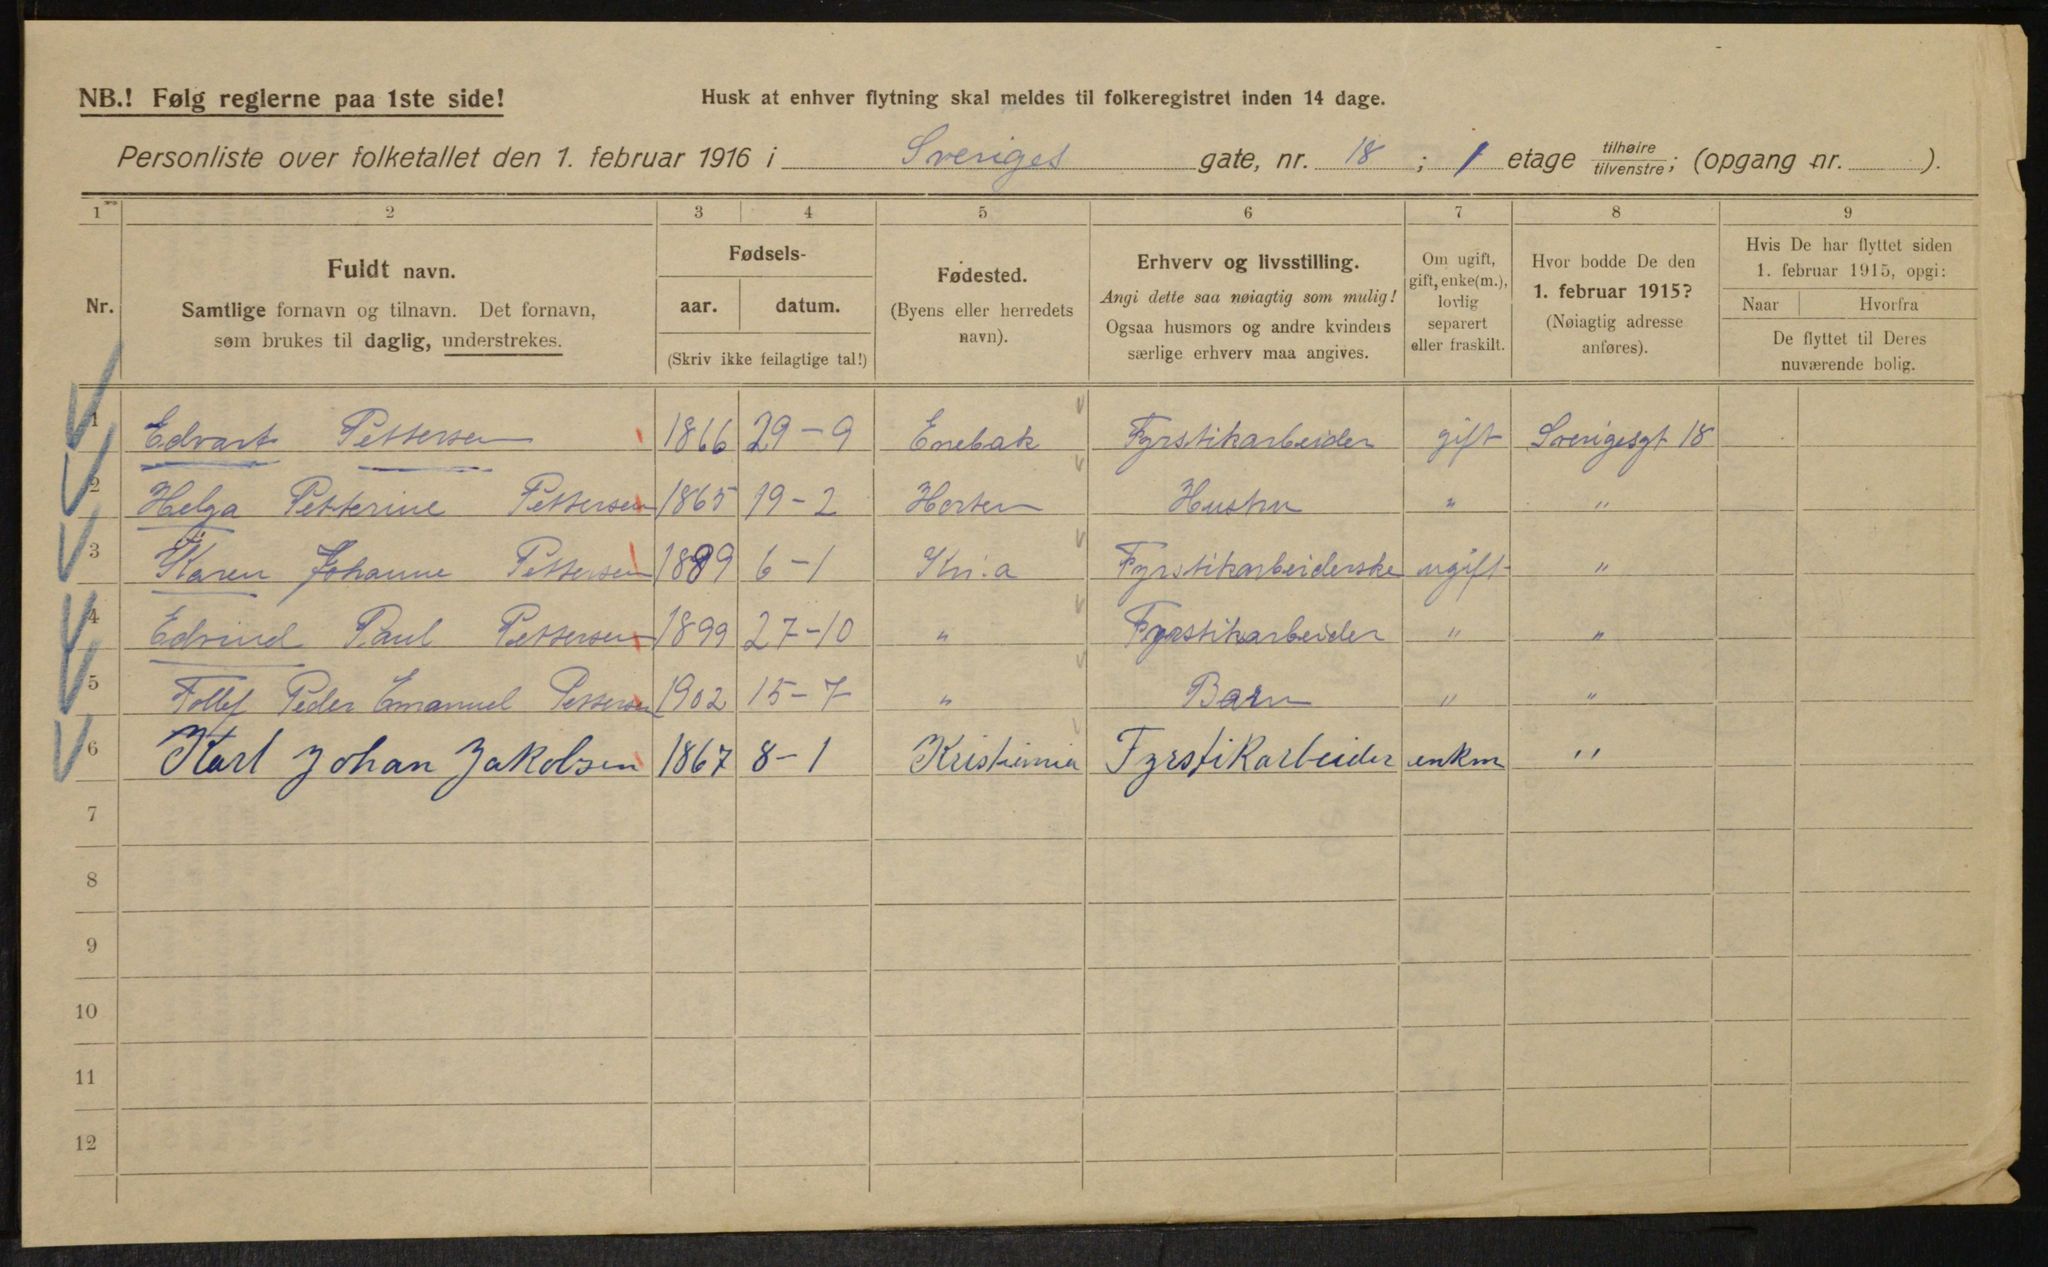 NB.! Følg reglerne paa 1ste side!
Husk at enhver flytning skal meldes til folkeregistret inden 14 dage.
Personliste over folketallet den 1. februar 1916 i Sveriges gate, nr. 18 ; 1 etage tilhøire/tilvenstre; (opgang nr. ).
1 2 3 4 5 6 7 8 9
Nr.
Fuldt navn.
Samtlige fornavn og tilnavn. Det fornavn,
som brukes til daglig, understrekes.
Fødsels-
aar. datum.
(Skriv ikke feilagtige tal!)
Fødested.
(Byens eller herredets
navn).
Erhverv og livsstilling.
Angi dette saa nøiagtig som mulig!
Ogsaa husmors og andre kvinders
særlige erhverv maa angives.
Om ugift,
gift, enke(m.),
lovlig
separert
eller fraskilt.
Hvor bodde De den
1. februar 1915?
(Nøiagtig adresse
anføres).
Hvis De har flyttet siden
1. februar 1915, opgi:
Naar Hvorfra
De flyttet til Deres
nuværende bolig.
1 Edvart Pettersen 1866 29-9 Enebak Fyrstikarbeider gift Sverigesgt 18
2 Helga Petterine Pettersen 1865 19-2 Horten Hustru " "
3 Karen Johanne Pettersen 1889 6-1 Kri.a Fyrstikarbeiderske ugift "
4 Edvind Paul Pettersen 1899 27-10 " Fyrstikarbeider " "
5 Peder Emanuel Pettersen 1902 15-7 " Barn " "
6 Karl Johan Jakobsen 1867 8-1 Kristiania Fyrstikarbeider enkm "
7
8
9
10
11
12